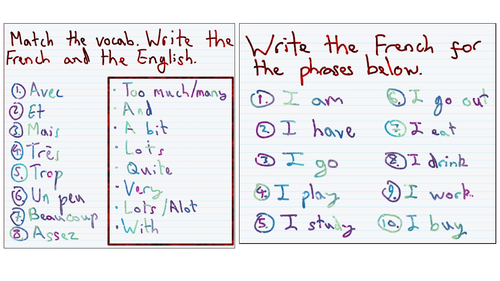 Match the vocab. Write the
French and the English.
1. Avec
2. Et
3. Mais
4. Très
5. Trop
6. Un peu
7. Beaucoup
8. Assez
· Too much/many
· And
· A bit
· Lots
· Quite
· Very
· Lots/Alot
· With
Write the French for
the phrases below.
1. I am
2. I have
3. I go
4. I play
5. I study
6. I go out
7. I eat
8. I drink
9. I work
10. I buy